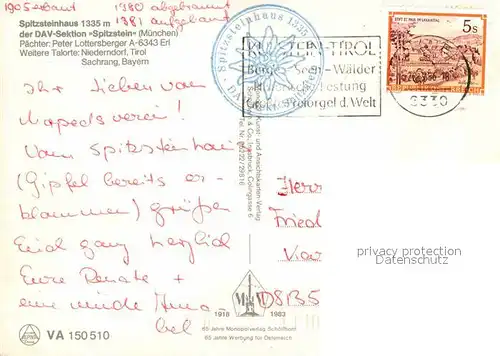 1905 erbaut 1980 abgebrannt
1981 aufgebaut
Spitzsteinhaus 1335 m
der DAV-Sektion »Spitzstein« (München)
Pächter: Peter Lottersberger A-6343 Erl
Weitere Talorte: Niederndorf, Tirol
Sachrang, Bayern
Spitzsteinhaus 1335
KUFSTEIN-TIROL
Berge - Seen - Wälder
Festung
Größte Freiorgel d. Welt
STIFT ST. PAUL IM LAVANTTAL
5s
REPUBLIK ÖSTERREICH
6330
Ihr Lieben vom
Mopedsverein!
Vom Spitzsteinhaus
(Gipfel bereits er-
klommen) grüßen
Euch ganz herzlich
Eure Renate +
eine müde Anna-
bel
Kunst- und Ansichtskarten-Verlag
Innsbruck
Herrn
Fried
D8135
privacy protection
Datenschutz
1918 1983
65 Jahre Monopolverlag Schöllhorn
65 Jahre Werbung für Österreich
VA 150510